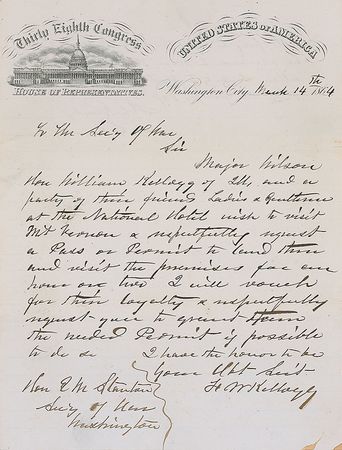 Thirty Eighth Congress
HOUSE OF REPRESENTATIVES.
UNITED STATES OF AMERICA
Washington City, March 14th 1864
To The Sec'y Of War
Sir
Major Wilson
Hon William Kellogg of Ills and a
party of their friends Ladies & Gentlemen
at the National Hotel wish to visit
Mt Vernon & respectfully request
a Pass or Permit to land there
and visit the premises for an
hour or two I will vouch
for their loyalty & respectfully
request you to grant them
the needed Permit if possible
to do so
I have the honor to be
Your Obt Servt
F W Kellogg
Hon E M Stanton
Sec'y of War
Washington